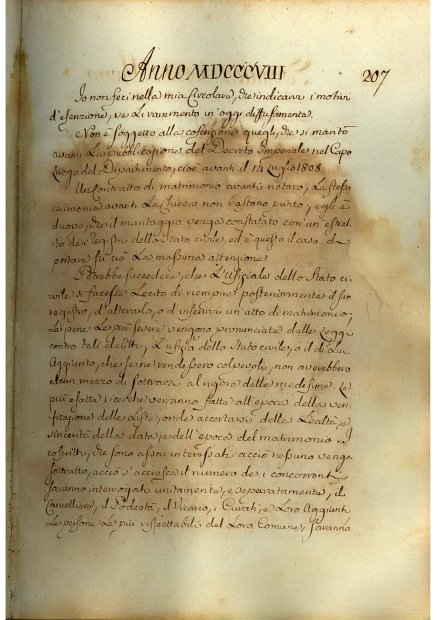 Anno MDCCCVIII
207
Io non feci nella mia Circolare, che indicarvi i motivi
d'esenzione, ve li rammento in oggi diffusamente.
Non è soggetto alla coscrizione quegli, che si maritò
avanti la pubblicazione del Decreto Imperiale nel Capo
luogo del Dipartimento, cioè avanti il 14 Luglio 1808.
Un Contratto di matrimonio avanti notaro, la stessa
cerimonia avanti la Chiesa non bastano punto, egli è
duopo, che il maritaggio venga constatato con un estrat
to dei registri dello Stato civile, ed è questo il caso di
portare su ciò la massima attenzione.
Potrebbe succedere, che l'Ufiziale dello Stato ci
vile si facesse lecito di riempire posteriormente il suo
registro, d'alterarlo, o d'inserirvi un'atto di matrimonio,
le pene le più severe vengono pronunciate dalle leggi
contro tali delitti, l'Ufizio dello Stato civile, o il di lui
Aggiunto, che se ne rendessero colpevoli, non avrebbero
alcun mezzo di sottrarsi al rigore delle medesime. Le
più esatte ricerche verranno fatte all'epoca della veri
ficazione delle liste, onde accertarsi della lealtà, e
sincerità della data, e dell'epoca del matrimonio. I
coscritti, che sono assai interessati acciò nessuno venga
sottratto, acciò s'accresca il numero dei concorrenti
saranno interrogati unitamente, e separatamente, il
Cancelliere, il Podestà, il Vicario, i Curati, e loro Aggiunti
le persone le più rispettabili del loro Comune, saranno